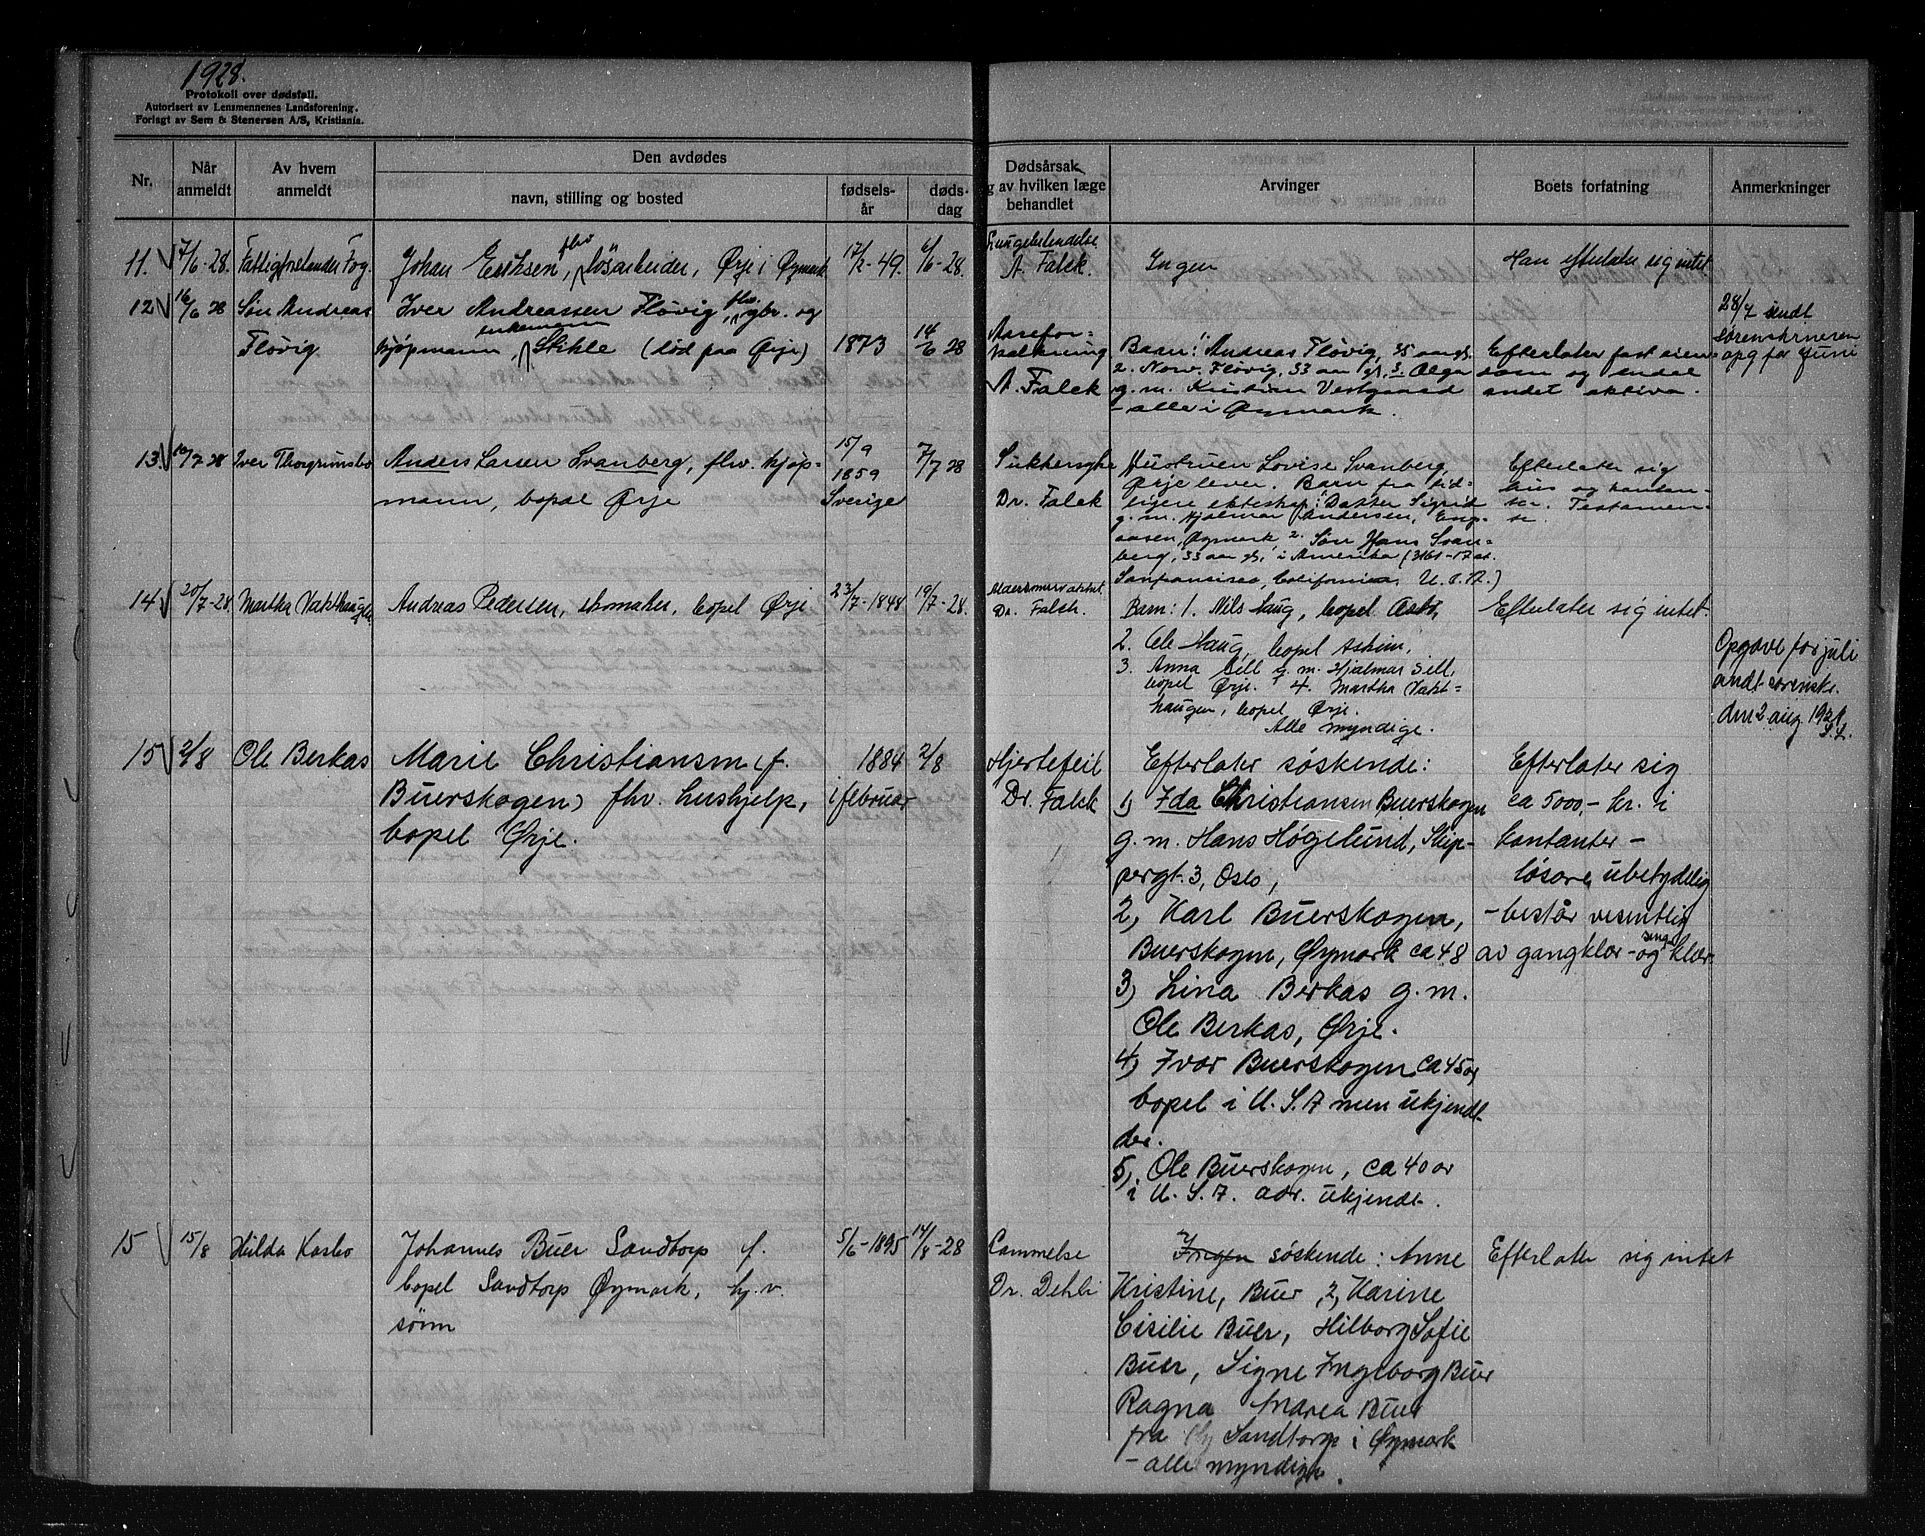 1928.
Protokoll over dødsfall.
Autorisert av Lensmennenes Landsforening.
Forlagt av Sem & Stenersen A/S, Kristiania.
Nr.
Når anmeldt
Av hvem anmeldt
Den avdødes
navn, stilling og bosted
fødsels-år
døds-dag
Dødsårsak
g av hvilken læge
behandlet
Arvinger
Boets forfatning
Anmerkninger
11. 7/6-28. Fattigforstander Fog.
Johan Eriksen, flv løsarbeider, Ørje i Øymark 17/2-49. 6/6-28.
A. Falck.
Ingen
Han efterlater sig intet
12 16/6 28 Søn Andreas
Fløvig.
Iver Andreassen Fløvig, flv. gbr. og
kjøpmann, enkemann Stikle (død paa Ørje) 1873 14/6 28
Aarefor-
kalkning
A. Falck
Barn: 1. Andreas Fløvig, 35 aar gl.
2. Norv. Fløvig, 33 aar gl. 3. Olga
g. m. Kristian Vestgaard
- alle i Øymark.
Efterlater fast eien-
dom og endel
andet aktiva.
28/7 sendt
sorenskriveren
opg for juni
13 10/7 28 Iver Thorgrimsbo
Anders Larsen Svanberg, flv. kjøp-
mann, bopæl Ørje
15/9
1859
Sverige
7/7 28
Sukkersyke
Dr. Falck
Hustruen Lovise Svanberg,
Ørje lever. Barn fra tid-
ligere ekteskap: 1 Datter Sigrid
g. m. Hjalmar Andersen, Eng-
aasen, Øymark 2. Søn Hans Svan-
berg, 33 aar gl. i Amerika (3161-17 st.
Sanfransisco, California, U.S.A.)
Efterlater sig
hus og kontan-
ter. Testamen-
te.
14 20/7-28. Martha Vakthaugen
Andreas Pedersen, skomaker, bopel Ørje 23/7-1848 19/7-28.
Alderdomssvakhet.
Dr. Falck.
Barn: 1. Nils Haug, bopel Oslo,
2. Ole Haug, bopel Askim.
3. Anna Sell g. m. Hjalmar Sell,
bopel Ørje. 4. Martha Vakt-
haugen, bopel Ørje.
Alle myndige.
Efterlater sig intet.
Opgave for juli
sendt sorenskr.
den 2 aug 1928
15 2/8 Ole Berkas
Marie Christiansen f.
Buerskogen) fhv. hushjelp,
bopel Ørje.
1884
i februar
2/8
Hjertefeil
Dr. Falck
Efterlater søskende:
1) Ida Christiansen Buerskogen
g. m. Hans Høgelund, Skip-
pergt. 3, Oslo,
2, Karl Buerskogen,
Buerskogen, Øymark ca 48
3) Lina Berkas g. m.
Ole Berkas, Ørje.
4) Ivar Buerskogen ca 45 år
bopel i U.S.A men ukjendt
5). Ole Buerskogen, ca 40 år
i U.S.A. adr. ukjendt.
Efterlater sig
ca 5000,- kr. i
kontanter -
løsøre ubetydelig
- består vesentlig
av gangklær - og sengklær
15 15/8 Hilda Kasbo
Johannes Buer Sandtorp f.
bopel Sandtorp Øymark, hj. v.
sønn
5/6-1895 14/8-28
Lammelse
Dr. Dehli
Ingen søskende: Anne
Kristine, Buer 2, Karine
Cisilie Buer, Hilborg Sofie
Buer, Signe Ingeborg Buer
Ragna Andrea Buer
fra Sandtorp i Øymark
- alle myndige.
Efterlater sig intet